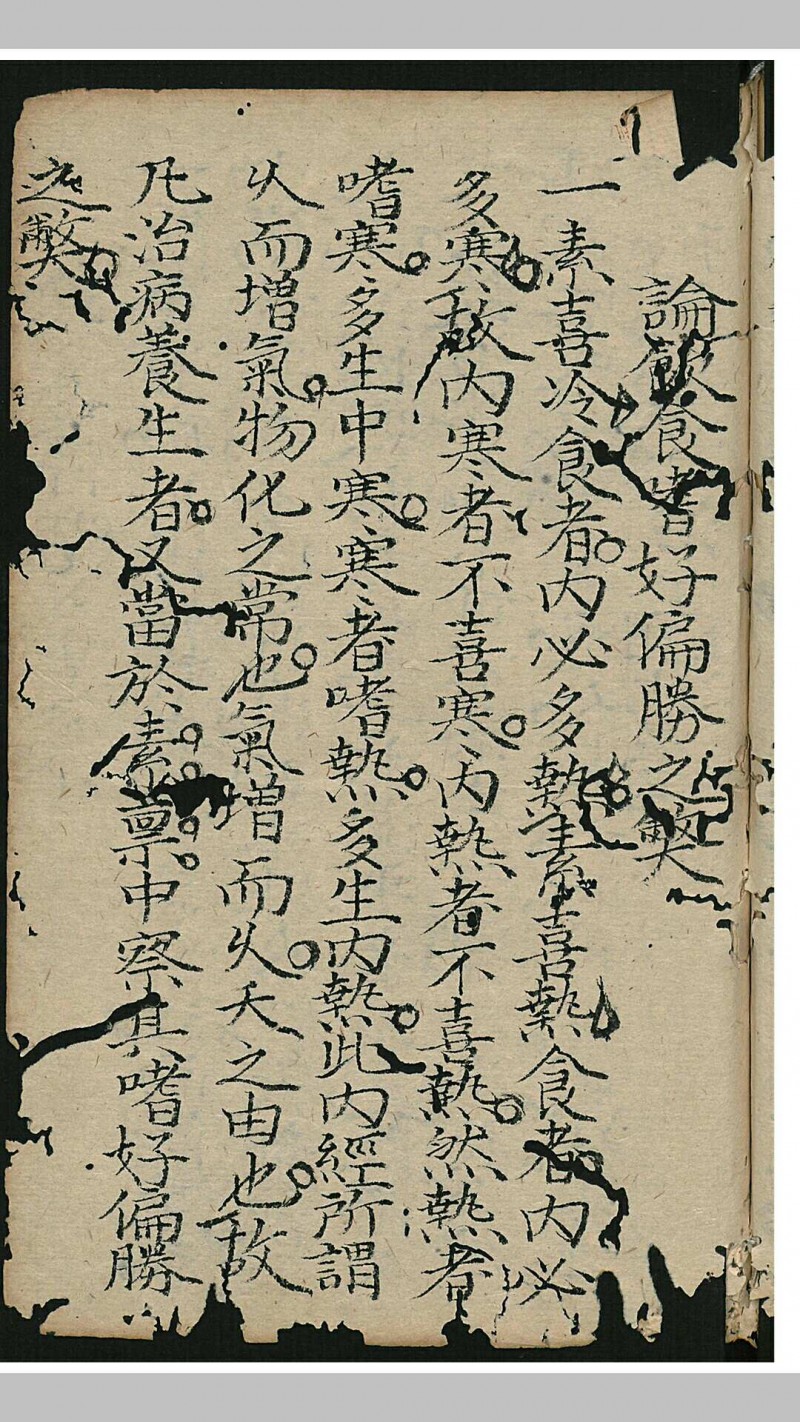 論飲食嗜好偏勝之弊
一素喜冷食者内必多熱素喜熱食者内必
多寒故内寒者不喜寒内熱者不喜熱然熱者
嗜寒多生中寒寒者嗜熱多生内熱此内經所謂
乆而增氣物化之常也氣增而乆夭之由也故
凡治病養生者又當於素禀中察其嗜好偏勝
之弊